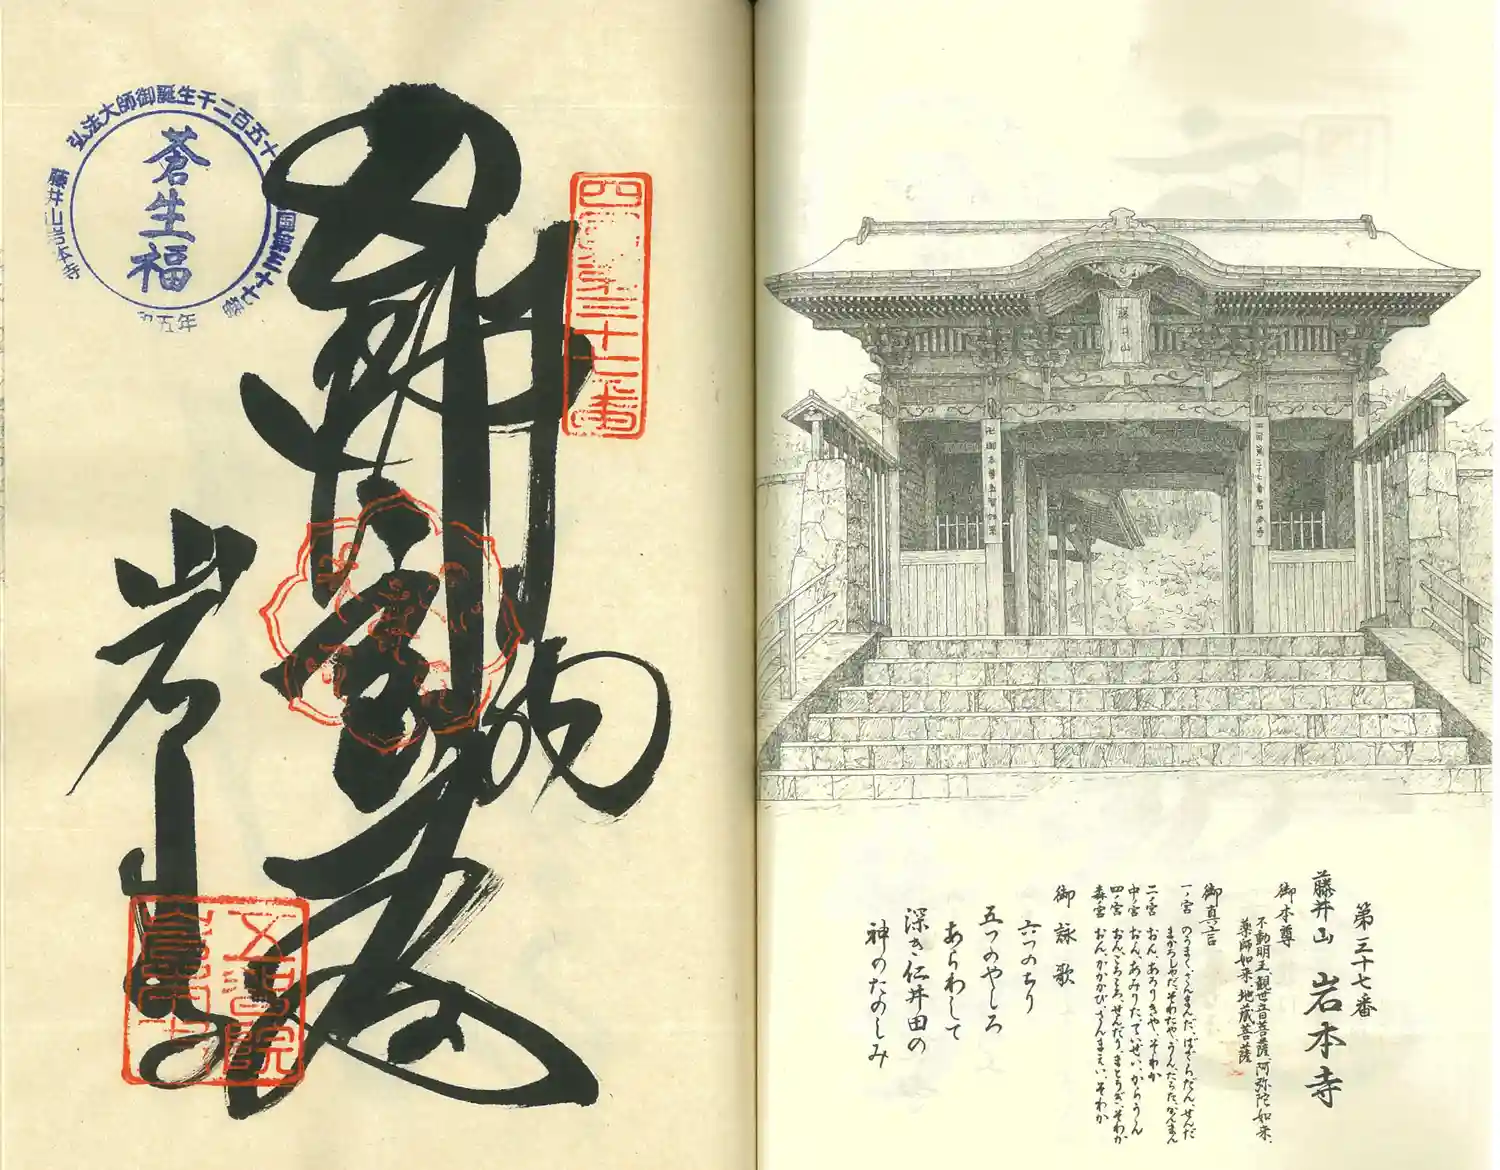 弘法大師御誕生千二百五十
国第三十七番
藤井山岩本寺
蒼生福
五年
奉納
岩本寺
四国第三十七番
五智院
岩本寺
藤井山
四国第三十七番岩本寺
第三十七番
藤井山 岩本寺
御本尊
不動明王、観世音菩薩、阿弥陀如来、
薬師如来、地蔵菩薩
御真言
一ノ宮 のうまくさんまんだ、ばざらだん、せんだ
まかろしゃだ、そわたや、うんたらた、かんまん
二ノ宮 おん、あろりきや、そわか
中ノ宮 おん、あみりた、ていせい、からうん
四ノ宮 おん、ころころ、せんだり、まとうぎ、そわか
森ノ宮 おん、かかかび、さんまえい、そわか
御詠歌
六つのちり
五つのやしろ
あらわして
深き仁井田の
神のたのしみ